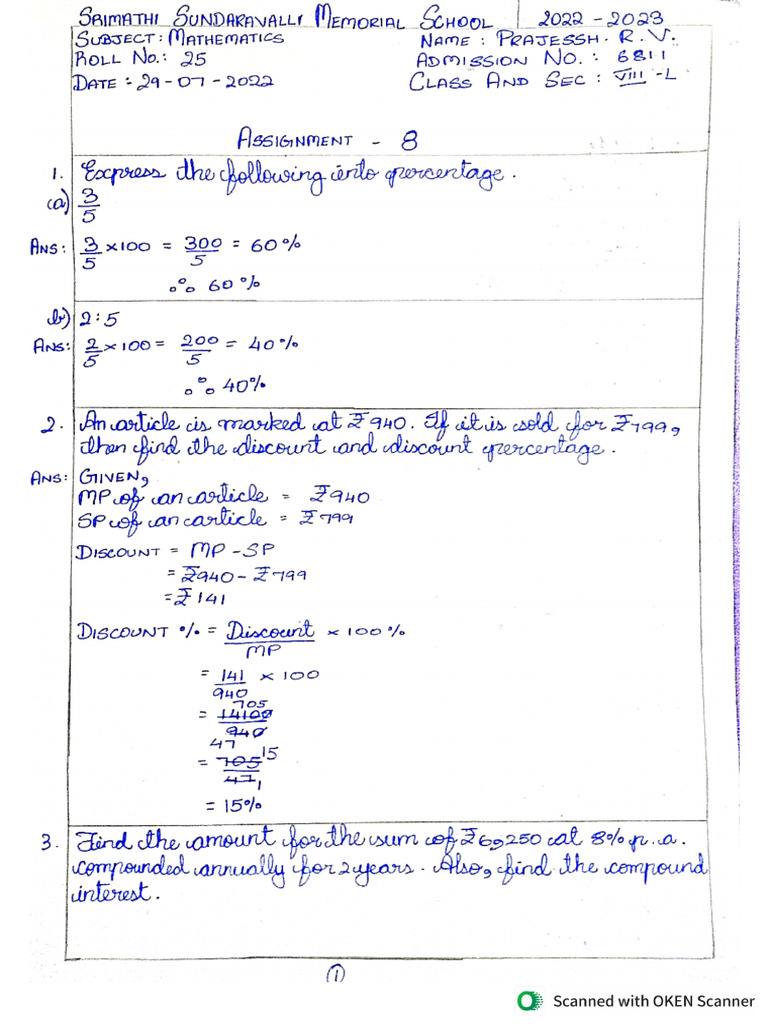 SRIMATHI SUNDARAVALLI MEMORIAL SCHOOL 2022-2023
SUBJECT: MATHEMATICS NAME: PRAJESSH. R.V.
ROLL NO.: 25 ADMISSION NO.: 6811
DATE: 29-07-2022 CLASS AND SEC: VIII-L
ASSIGNMENT - 8
1. Express the following into percentage.
(a) 3/5
ANS: 3/5 × 100 = 300/5 = 60%
∴ 60%
b) 2:5
ANS: 2/5 × 100 = 200/5 = 40%
∴ 40%
2. An article is marked at ₹940. If it is sold for ₹799,
then find the discount and discount percentage.
ANS: GIVEN,
MP of an article = ₹940
SP of an article = ₹799
DISCOUNT = MP - SP
= ₹940 - ₹799
= ₹141
DISCOUNT % = Discount/MP × 100%
= 141/940 × 100
705
= 14100/940
47
= 705/47 15
1
= 15%
3. Find the amount for the sum of ₹6,250 at 8% p.a.
compounded annually for 2 years. Also, find the compound
interest.
1
Scanned with OKEN Scanner